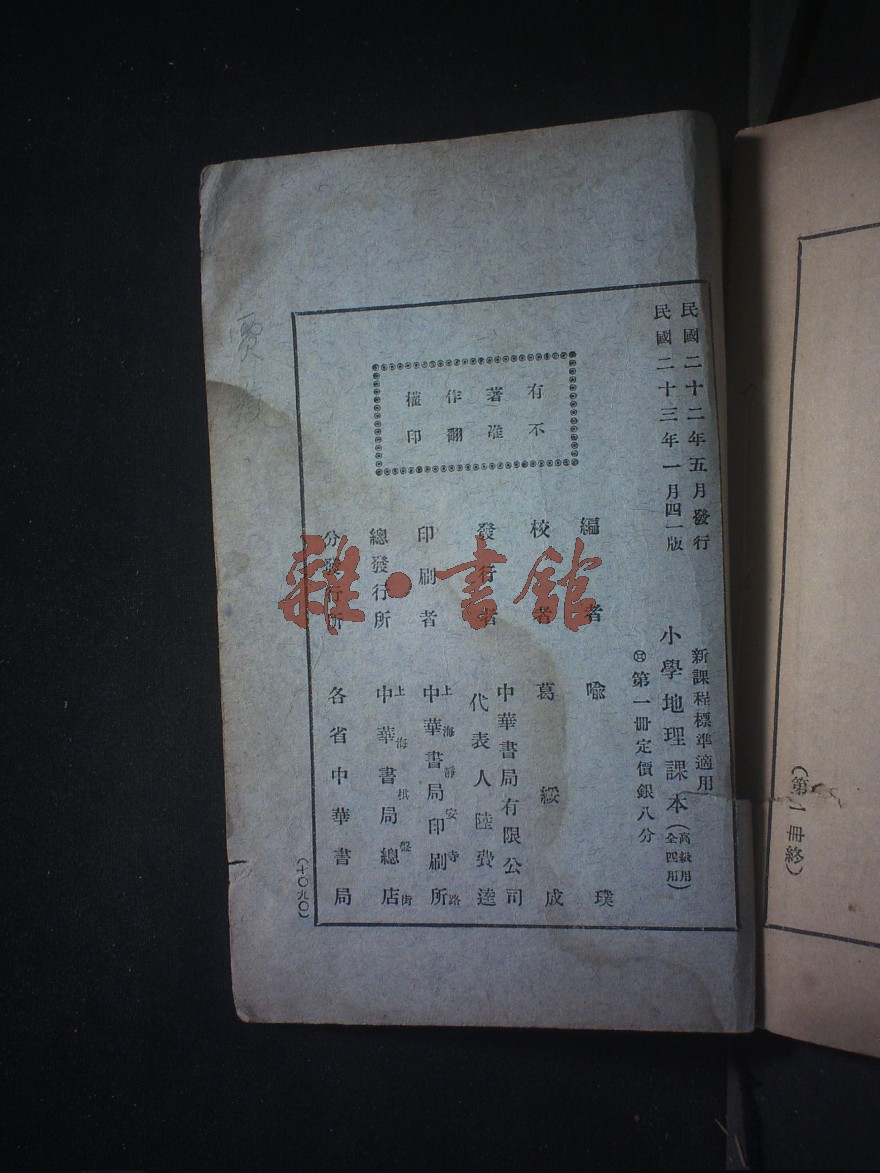 民國二十二年五月發行
民國二十三年一月四一版
新課程標準適用
小學地理課本(高級用全四冊)
第一冊定價銀八分
有著作權
不准翻印
編者 喻璞
校者 葛綏成
發行者 中華書局有限公司
代表人陸費逵
印刷者 上海靜安寺路
中華書局印刷所
總發行所 上海棋盤街
中華書局總店
分發行所 各省中華書局
(一〇九〇)
(第一冊終)
雜·書館